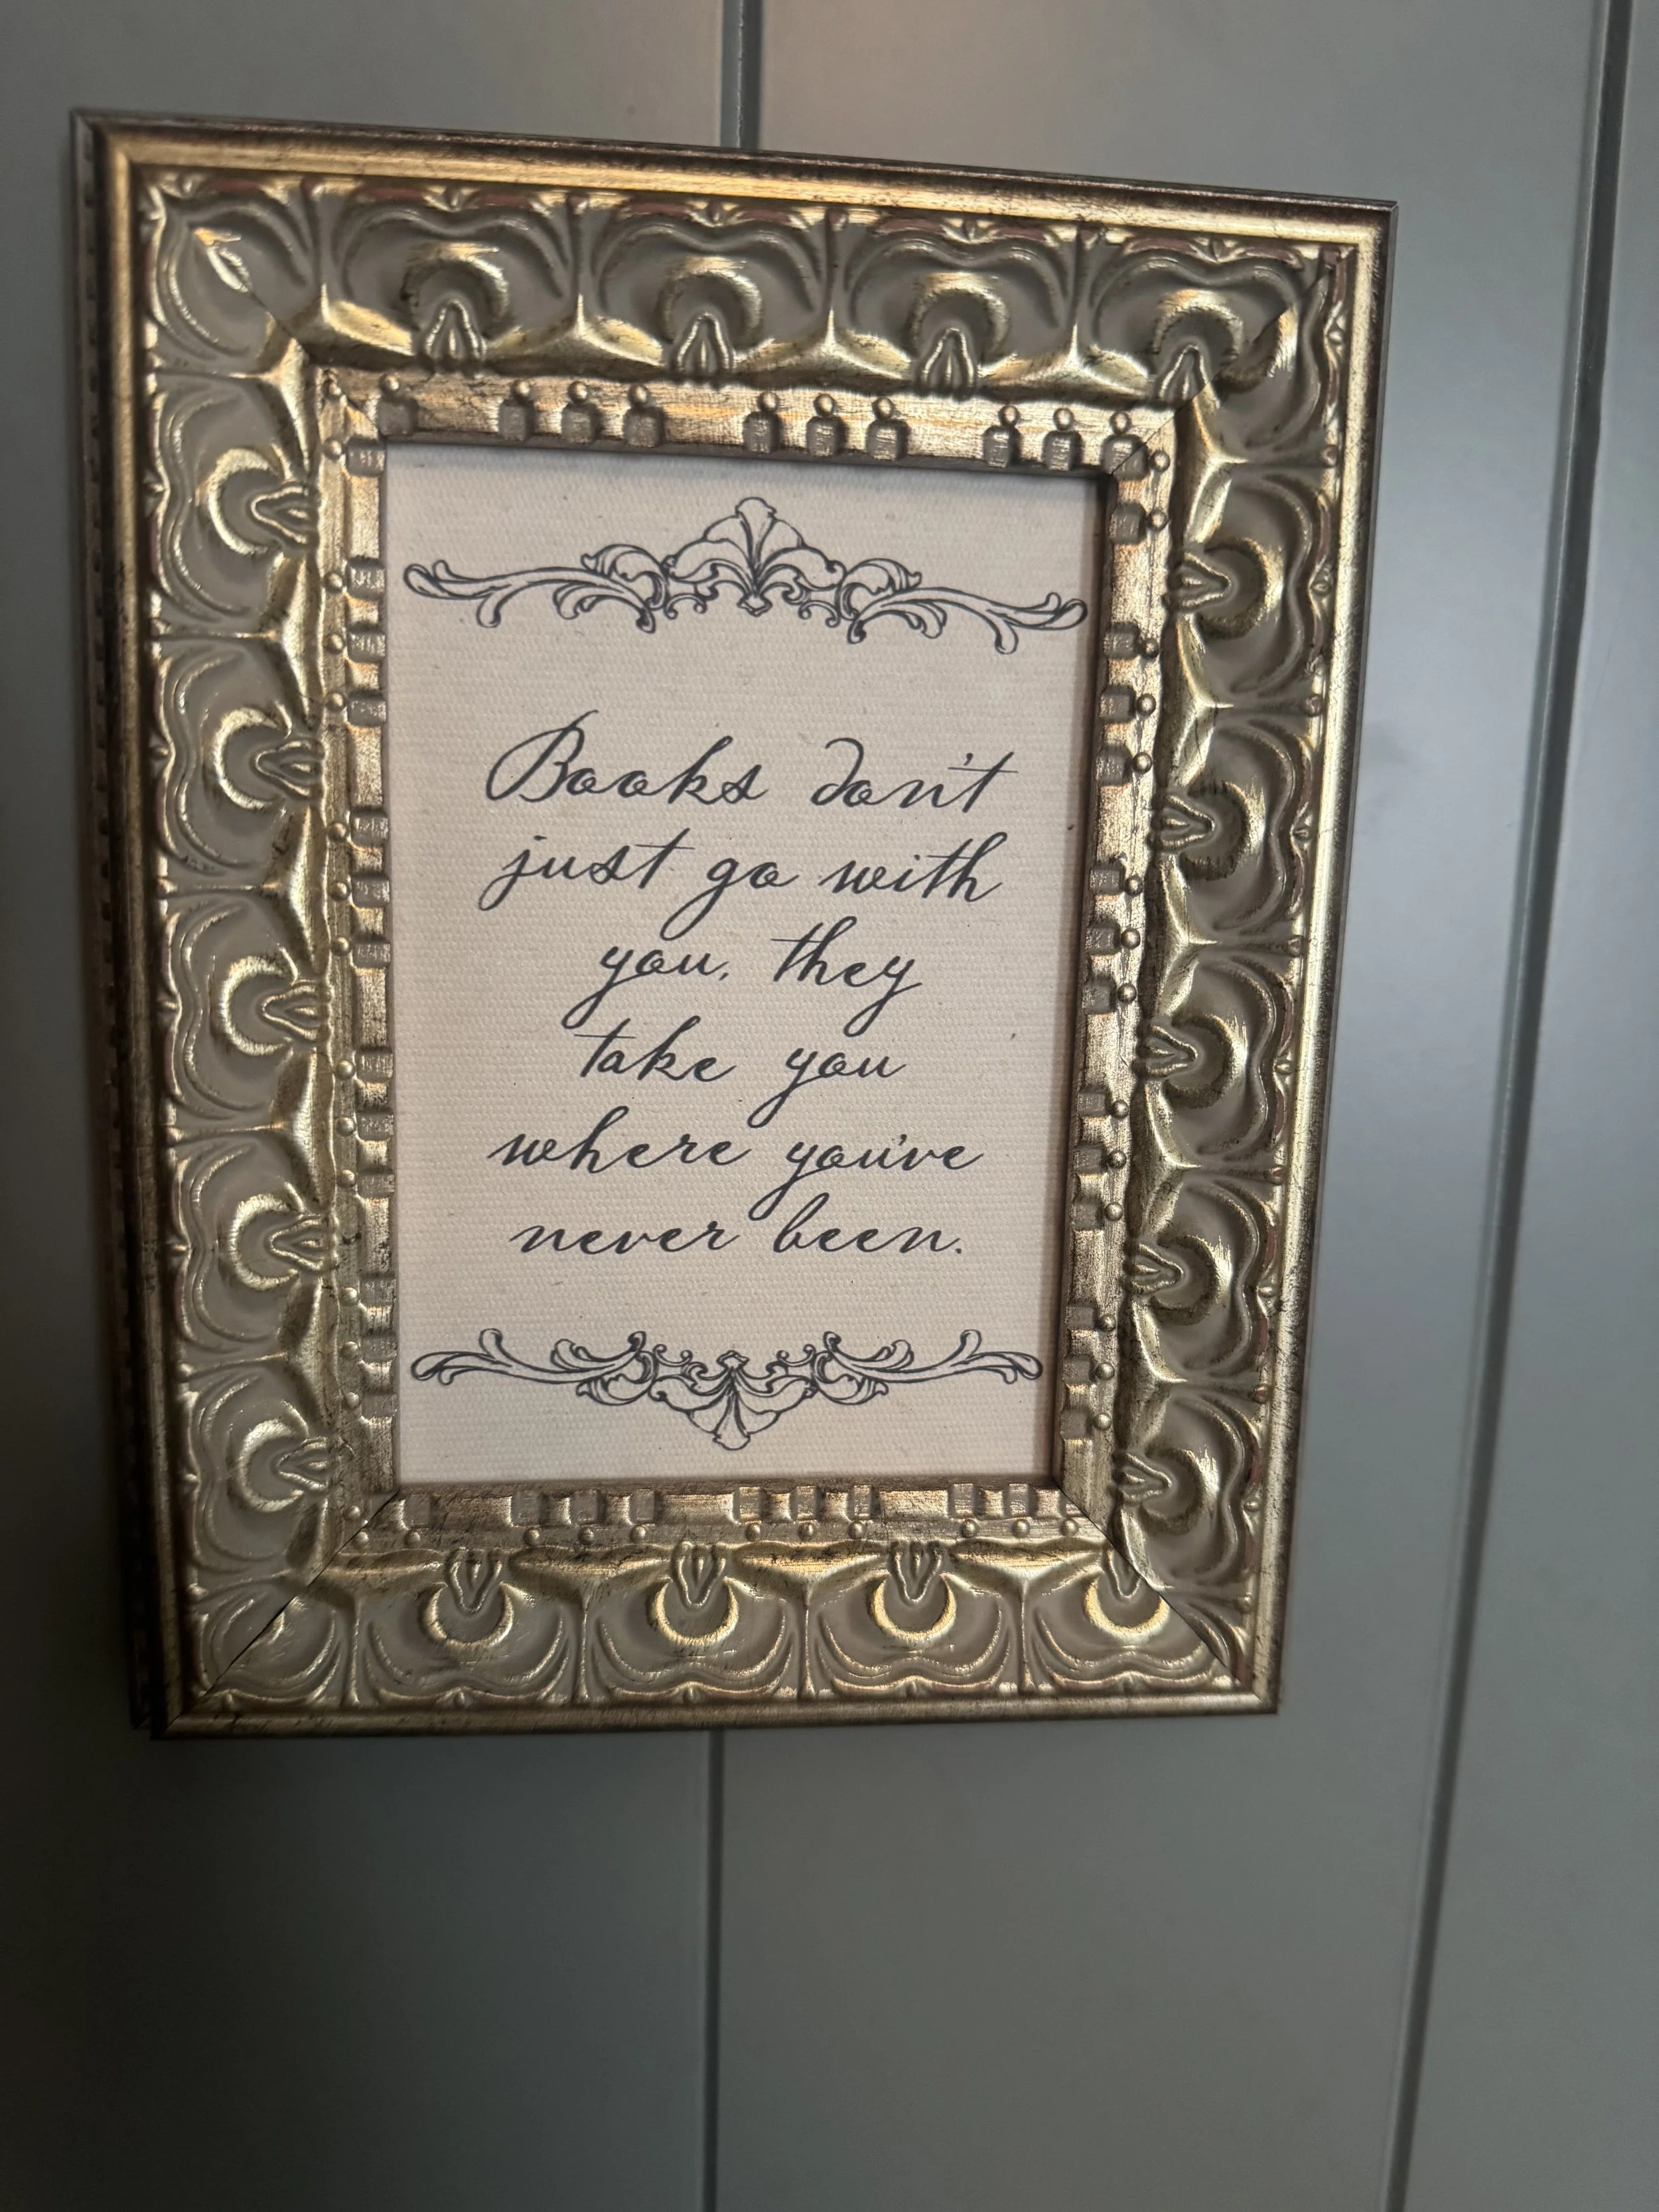 Books don't
just go with
you, they
take you
where you've
never been.